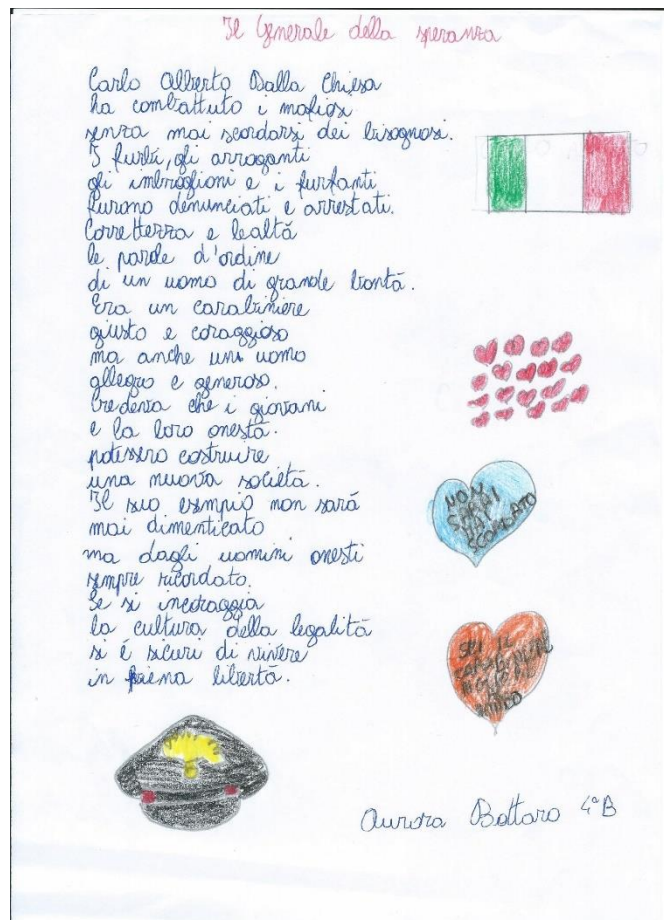 Il Generale della speranza
Carlo Alberto Dalla Chiesa
ha combattuto i mafiosi
senza mai scordarsi dei bisognosi.
I furbi, gli arroganti
gli imbroglioni e i furfanti
furono denunciati e arrestati.
Correttezza e lealtà
le parole d'ordine
di un uomo di grande bontà.
Era un carabiniere
giusto e coraggioso
ma anche un uomo
allegro e generoso.
Credeva che i giovani
e la loro onestà.
potessero costruire
una nuova società.
Il suo esempio non sarà
mai dimenticato
ma dagli uomini onesti
sempre ricordato.
Se si incoraggia
la cultura della legalità
si é sicuri di vivere
in piena libertà.
NON
SARAI
MAI
SCORDATO
SEI IL
CARABINIERE
AMICO
Aurora Bottaro 4°B